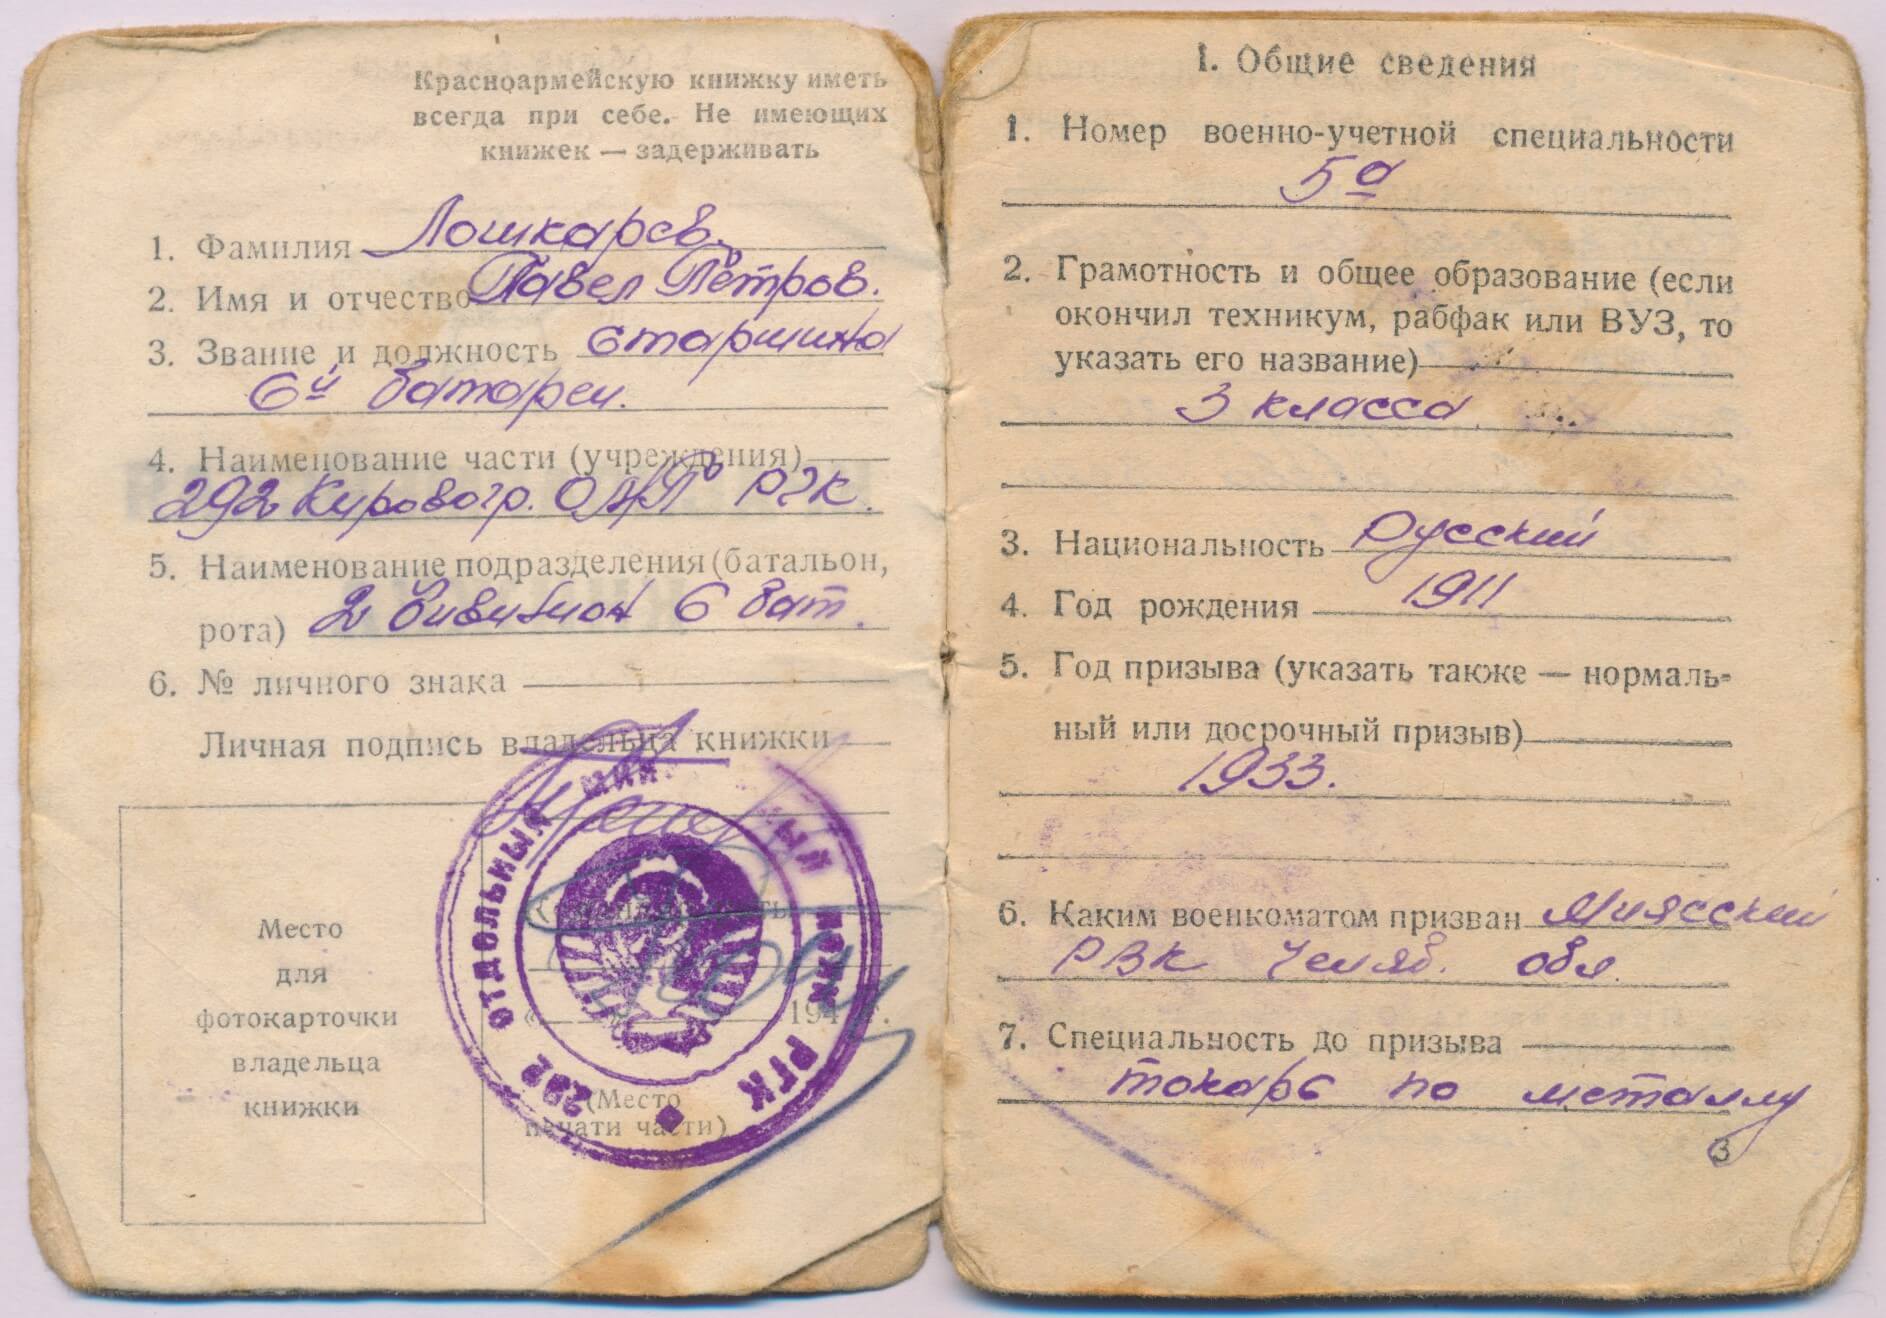 Красноармейскую книжку иметь
всегда при себе. Не имеющих
книжек — задерживать
1. Фамилия Лошкарев.
2. Имя и отчество Павел Петров.
3. Звание и должность старшина
6й батареи.
4. Наименование части (учреждения)
292 Кировогр. ОМП РГК.
5. Наименование подразделения (батальон,
рота) 2 дивизион 6 бат.
6. № личного знака
Личная подпись владельца книжки
Место
для
фотокарточки
владельца
книжки
292 ОТДЕЛЬНЫЙ МИН НЫЙ ПОЛК РГК
« » 194 г.
(Место
печати части)
1. Общие сведения
1. Номер военно-учетной специальности
5а
2. Грамотность и общее образование (если
окончил техникум, рабфак или ВУЗ, то
указать его название)
3 класса
3. Национальность Русский
4. Год рождения 1911
5. Год призыва (указать также — нормаль-
ный или досрочный призыв)
1933.
6. Каким военкоматом призван Миясский
РВК Челяб. обл.
7. Специальность до призыва
токарь по металлу
3